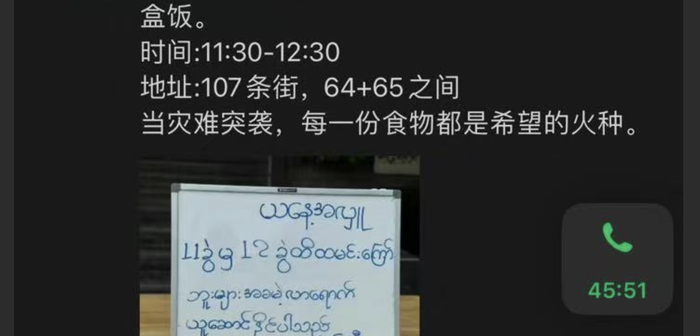 盒饭。
时间:11:30-12:30
地址:107条街，64+65之间
当灾难突袭，每一份食物都是希望的火种。
ယနေ့အလှူ
11ခွဲမှ 12 ခွဲထိထမင်းကြော်
ဘူးများအခမဲ့လာရောက်
ယူဆောင်နိုင်ပါသည်
45:51